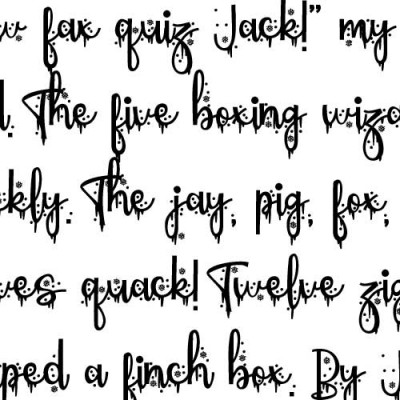 w fax quiz Jack!” my
d. The five boxing wiza
ckly. The jay, pig, fox,
ves quack! Twelve zig
ped a finch box. By J